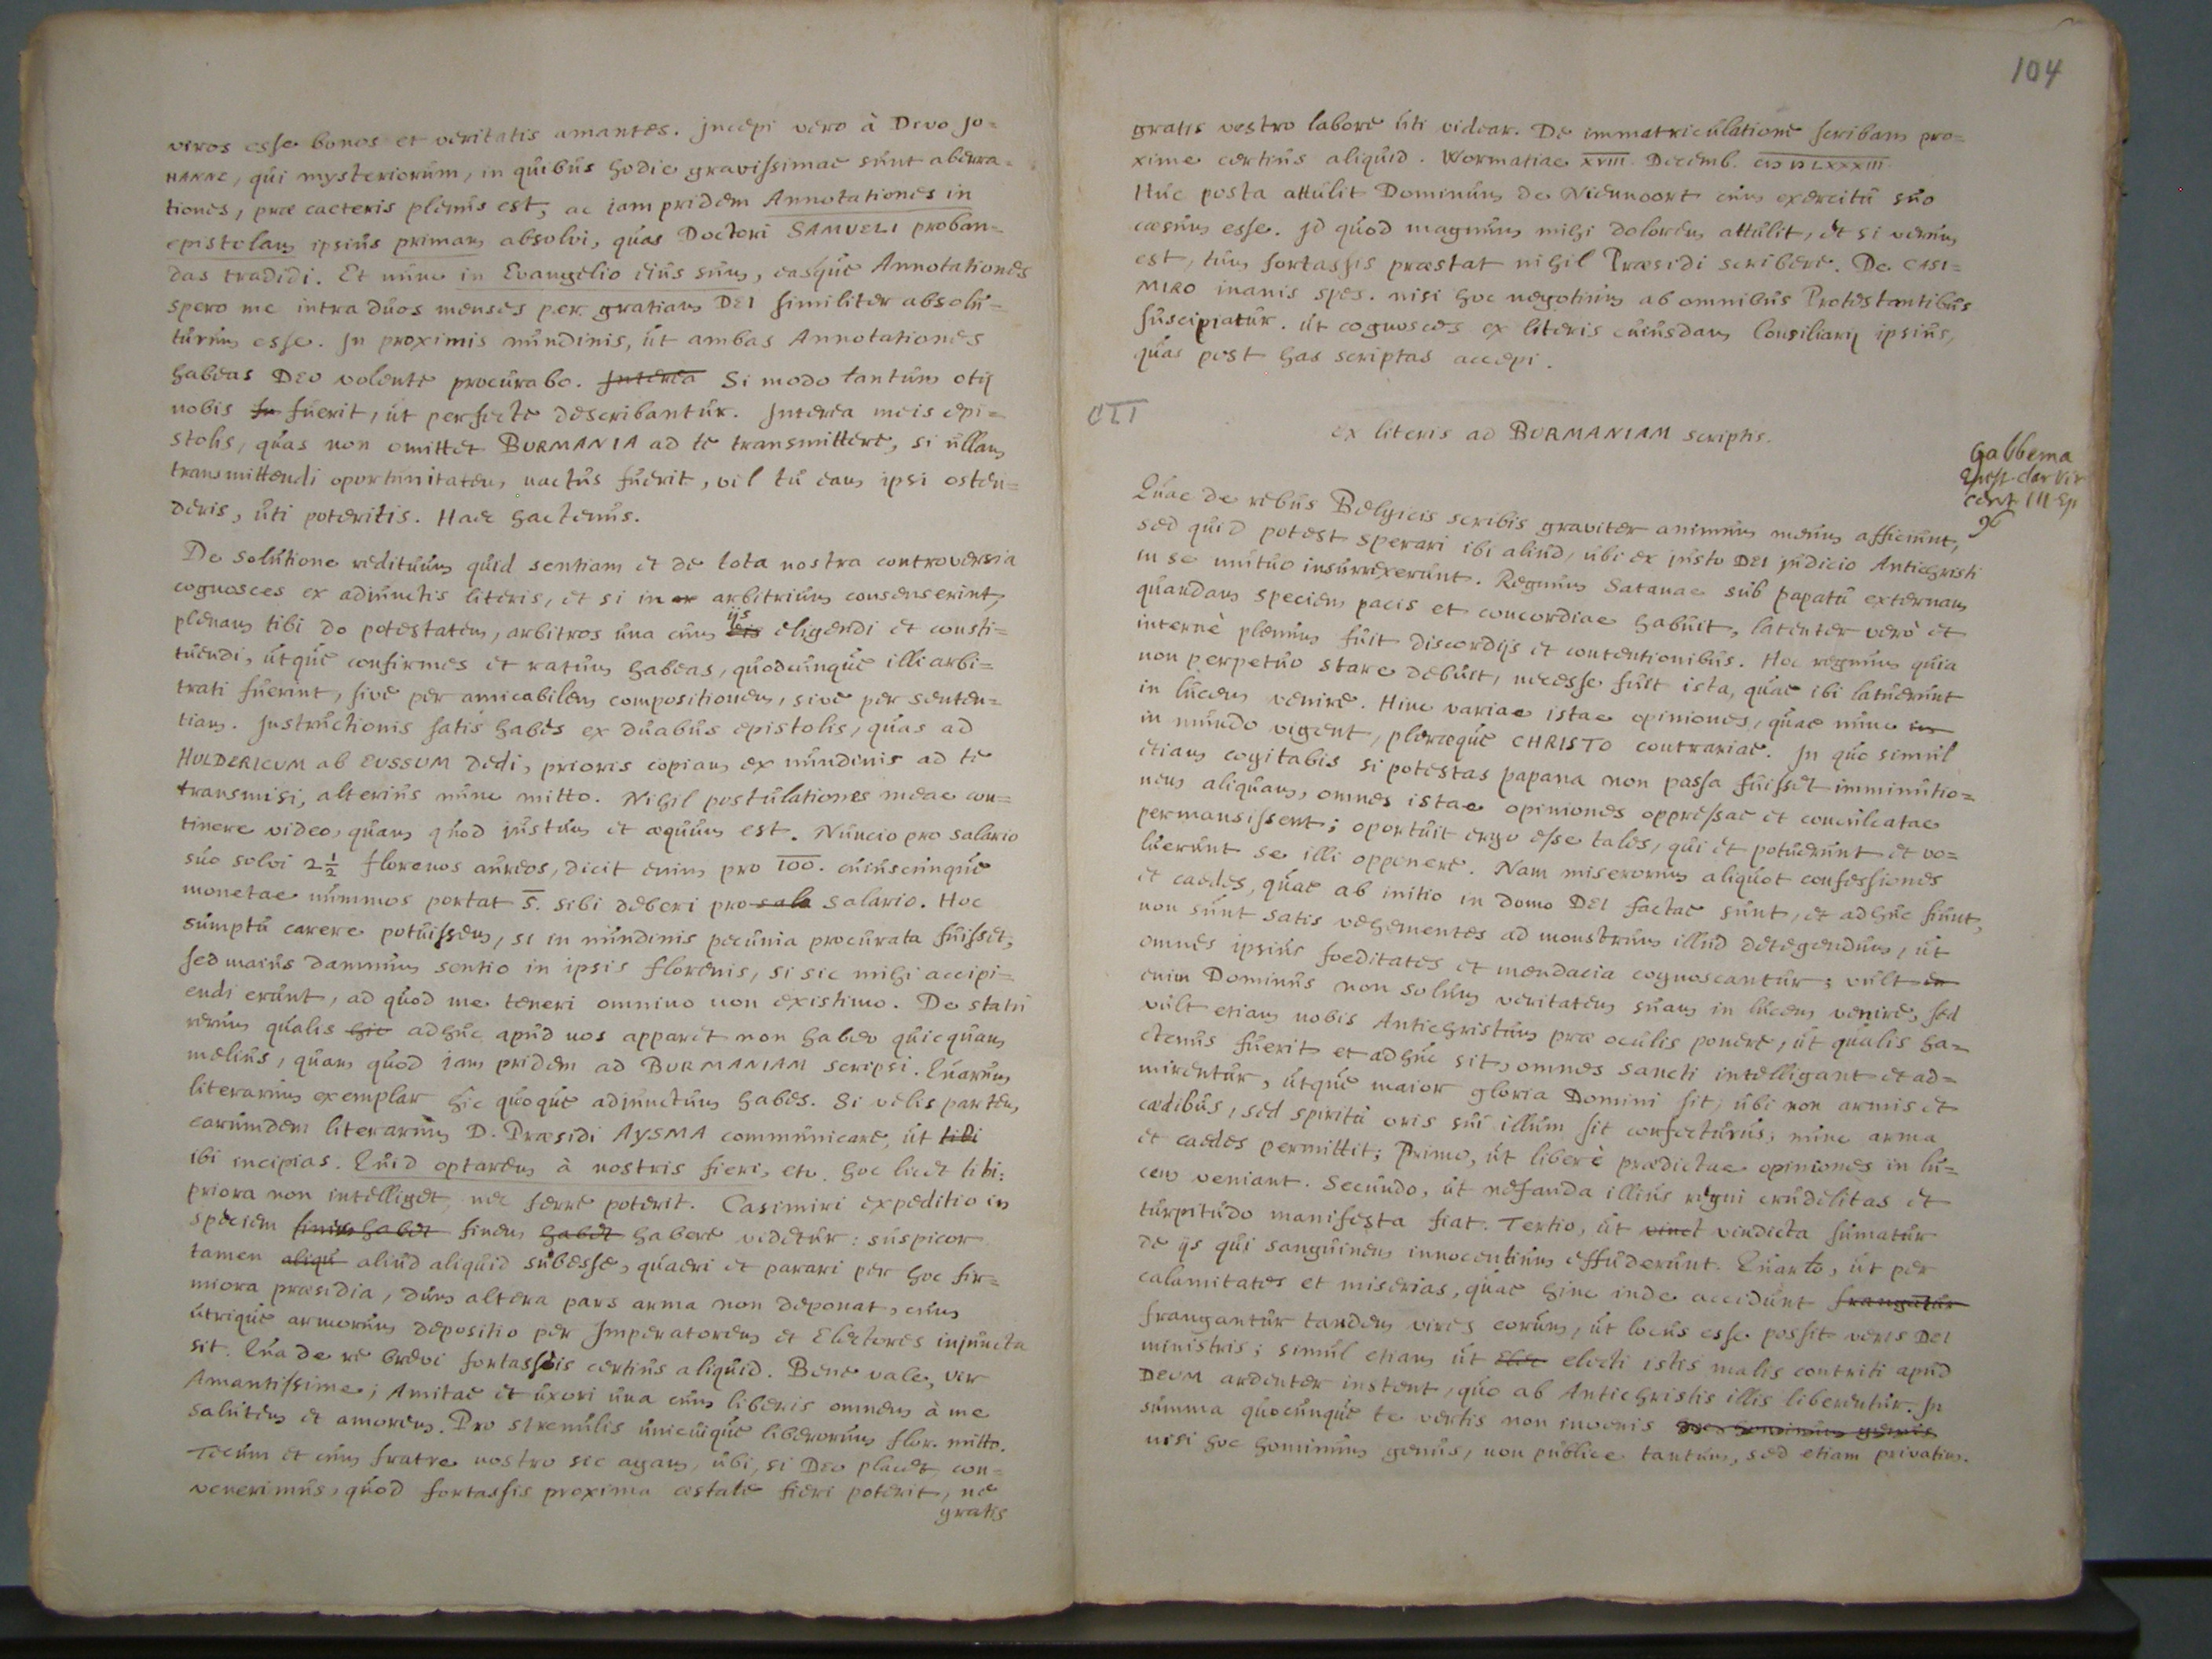 viros esse bonos et veritatis amantes. Jncepi vero à Divo Jo=
HANNE, qui mysteriorum, in quibus hodie gravissimae sunt aberra=
tiones, prae caeteris plenus est, ac iam pridem Annotationes in
epistolam ipsius primam absolvi, quas Doctori SAMUELI proban=
das tradidi. Et nunc in Evangelio eius sum, easque Annotationes
spero me intra duos menses per gratiam DEI similiter absolu=
turum esse. In proximis nundinis, ut ambas Annotationes
habeas DEO volente procurabo. Interea Si modo tantum otij
nobis fu fuerit, ut perfecte describantur. Interea meis epi=
stolis, quas non omittet BURMANIA ad te transmittere, si ullam
transmittendi oportunitatem nactus fuerit, vel tu eam ipsi osten=
deris, uti poteritis. Haec hactenus.
De solutione redituum quid sentiam et de tota nostra controversia
cognosces ex adjunctis literis, et si in ar arbitrium consenserint,
ijs
plenam tibi do potestatem, arbitros una cum eis eligendi et consti=
tuendi, utque confirmes et ratum habeas, quodcunque illi arbi=
trati fuerint, sive per amicabilem compositionem, sive per senten=
tiam. Instructionis satis habes ex duabus epistolis, quas ad
HULDERICUM ab EUSSUM dedi, prioris copiam ex nundinis ad te
transmisi, alterius nunc mitto. Nihil postulationes meae con=
tinere video, quam quod justum et aequum est. Nuncio pro salario
suo solvi 2½ florenos aureos, dicit enim pro 100. cuiuscunque
monetae nummos portat 5. sibi deberi pro sala salario. Hoc
sumptu carere potuissem, si in nundinis pecunia procurata fuisset,
sed maius damnum sentio in ipsis florenis, si sic mihi accipi=
endi erunt, ad quod me teneri omnino non existimo. De statu
rerum qualis hic adhuc apud nos apparet non habeo quicquam
melius, quam quod iam pridem ad BURMANIAM scripsi. Quarum
literarum exemplar hic quoque adjunctum habes. Si velis partem
earumdem literarum D. Praesidi AYSMA communicare, ut tibi
ibi incipias. Quid optarem à nostris fieri, etc. hoc licet tibi:
priora non intelliget, nec ferre poterit. Casimiri expeditio in
speciem finem habet finem habet habere videtur: suspicor
tamen aliqu aliud aliquid subesse, quaeri et parari per hoc fir=
miora praesidia, dum altera pars arma non deponat, cum
utrique armorum depositio per Imperatorem et Electores injuncta
sit. Qua de re brevi fortassis certius aliquid. Bene vale, vir
Amantissime; Amitae et uxori una cum liberis omnem à me
salutem et amorem. Pro strenulis unicuique liberorum flor. mitto.
Tecum et cum fratre nostro sic agam, ubi, si DEO placet, con=
venerimus, quod fortassis proxima aestate fieri poterit, ne
gratis
104
gratis vestro labore uti videar. De immatriculatione scribam pro=
xime certius aliquid. Wormatiae XVIII. Decemb. CIƆ IƆ LXXXIII
Huc posta attulit Dominum de Nienuoort cum exercitu suo
caesum esse. Id quod magnum mihi dolorem attulit, et si verum
est, tum fortassis praestat nihil Praesidi scribere. De CASI=
MIRO inanis spes. nisi hoc negotium ab omnibus Protestantibus
suscipiatur. ut cognosces ex literis cuiusdam Consiliarij ipsius,
quas post has scriptas accepi.
CII
ex literis ad BURMANIAM scriptis.
Gabbema
Epist. clar. vir
cent III Ep
96
Quae de rebus Belgicis scribis graviter animum meum afficiunt,
sed quid potest sperari ibi aliud, ubi ex justo DEI judicio Antichristi
in se mutuo insurrexerunt. Regnum Satanae sub papatu externam
quandam speciem pacis et concordiae habuit, latenter verò et
internè plenum fuit discordijs et contentionibus. Hoc regnum quia
non perpetuo stare debuit, necesse fuit ista, quae ibi latuerunt
in lucem venire. Hinc variae istae opiniones, quae nunc in
in mundo vigent, pleraeque CHRISTO contrariae. In quo simul
etiam cogitabis si potestas papana non passa fuisset imminutio=
nem aliquam, omnes istae opiniones oppressae et conculcatae
permansissent; oportuit ergo esse tales, qui et potuerunt et vo=
luerunt se illi opponere. Nam miserorum aliquot confessiones
et caedes, quae ab initio in domo DEI factae sunt, et adhuc fiunt,
non sunt satis vehementes ad monstrum illud detegendum, ut
omnes ipsius foeditates et mendacia cognoscantur; vult en
enim Dominus non solum veritatem suam in lucem venire, sed
vult etiam nobis Antichristum prae oculis ponere, ut qualis ha=
ctenus fuerit et adhuc sit, omnes sancti intelligant et ad=
mirentur, utque maior gloria Domini sit, ubi non armis et
caedibus, sed spiritu oris sui illum sit confecturus; nunc arma
et caedes permittit; Primo, ut liberè praedictae opiniones in lu=
cem veniant. Secundo, ut nefanda illius regni crudelitas et
turpitudo manifesta fiat. Tertio, ut vinct vindicta sumatur
de ijs qui sanguinem innocentium effuderunt. Quarto, ut per
calamitates et miserias, quae hinc inde accidunt frangatur
frangantur tandem vires eorum, ut locus esse possit veris DEI
ministris; simul etiam ut elec electi istis malis contriti apud
DEUM ardenter instent, quo ab Antichristis illis liberentur. In
summa quocunque te vertis non invenis hoc hominum genus
nisi hoc hominum genus, non publice tantum, sed etiam privatim.